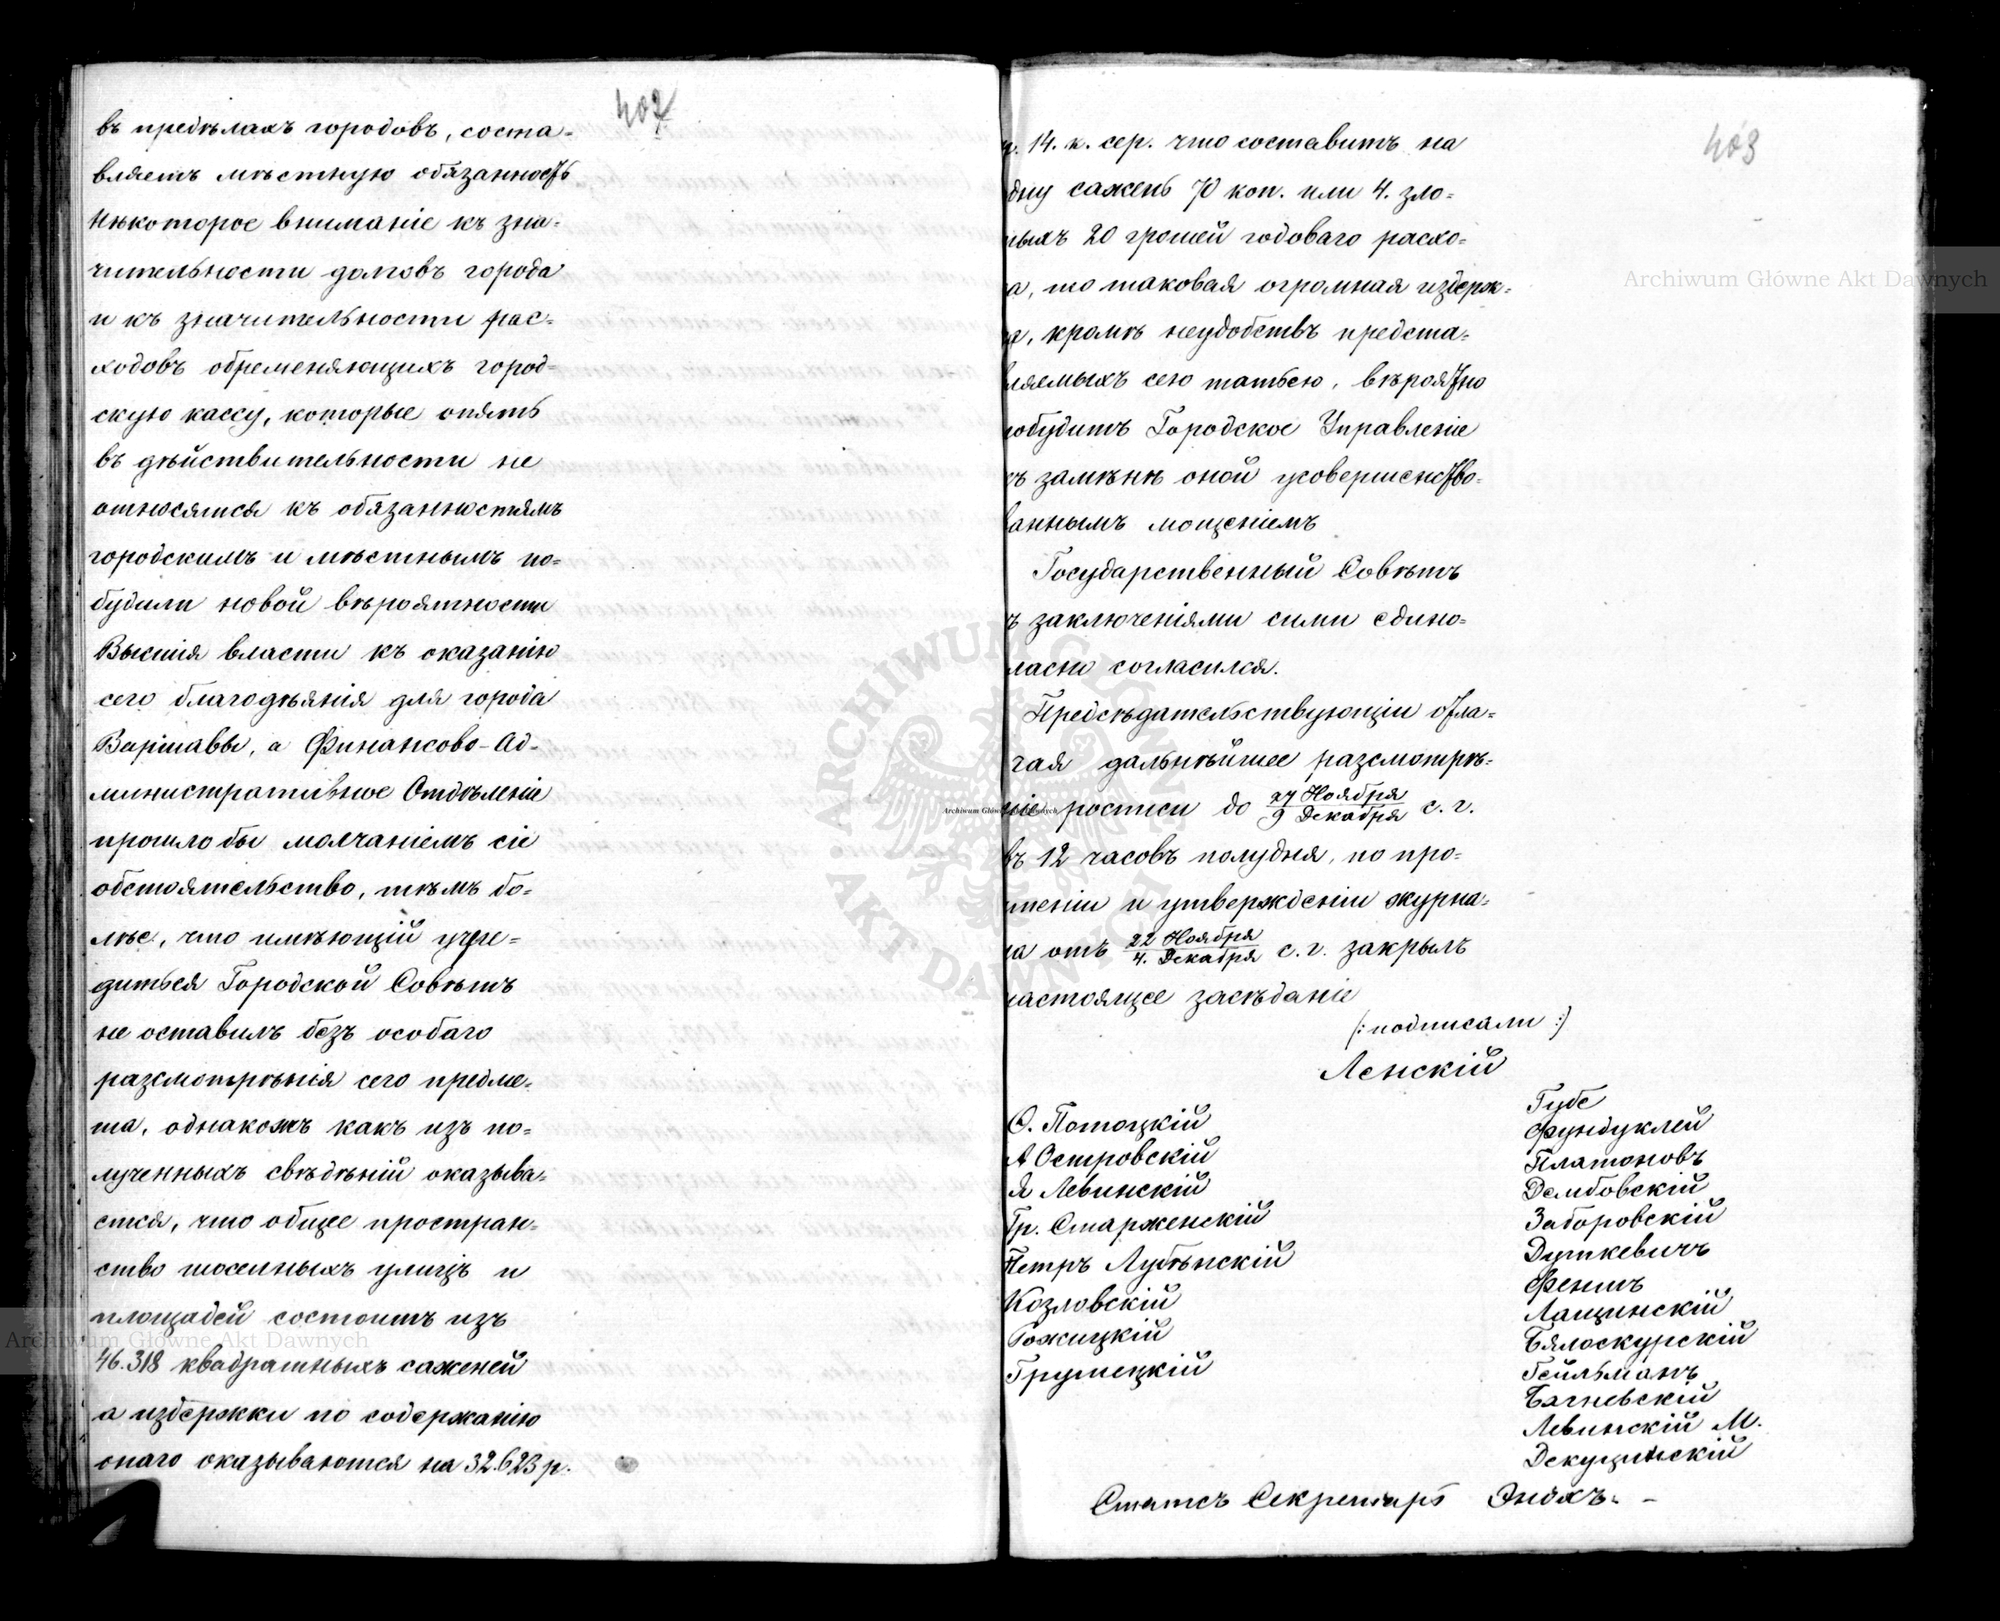 402
въ предѣлахъ городовъ, соста-
вляетъ мѣстную обязанность
Нѣкоторое вниманіе къ зна-
чительности долговъ города
и къ значительности рас-
ходовъ обременяющихъ город-
скую кассу, которые опять
въ дѣйствительности не
относятся къ обязанностямъ
городскимъ и мѣстнымъ по-
будили новой вѣроятности
Высшія власти къ оказанію
сего благодѣянія для города
Варшавы, а Финансово-Ад-
министративное Отдѣленіе
прошло бы молчаніемъ сіе
обстоятельство, тѣмъ бо-
лѣе, что имѣющій учре-
диться Городской Совѣтъ
не оставилъ безъ особаго
разсмотрѣнія сего предме-
та, однакожъ какъ изъ по-
лученныхъ свѣдѣній оказыва-
ется, что общее простран-
ство шоссиныхъ улицъ и
площадей состоитъ изъ
46.318 квадратныхъ саженей
а издержки по содержанію
онаго оказываются на 32.623 р.
403
р. 14. к. сер. что составитъ на
одну сажень 70 коп. или 4. зло-
тыхъ 20 грошей годоваго расхо-
а, то таковая огромная издерж-
а, кромѣ неудобствъ предста-
вляемыхъ сею статьею, вѣроятно
побудитъ Городское Управленіе
къ замѣнѣ оной усовершенство-
ваннымъ мощеніемъ
Государственный Совѣтъ
ъ заключеніями сими едино-
ласно согласился.
Предсѣдательствующій отла-
гая дальнѣйшее разсмотрѣ-
ніе росписи до 27 Ноября / 9 Декабря с. г.
въ 12 часовъ полудня, по про-
чтеніи и утвержденіи журна-
ла отъ 22 Ноября / 4. Декабря с. г. закрылъ
настоящее засѣданіе
(: подписали :)
Ленскій
О. Потоцкій
А Островскій
Я Левинскій
Гр. Старженскій
Петръ Лубѣнскій
Козловскій
Рожицкій
Грушецкій
Губе
Фундуклей
Платоновъ
Дембовскій
Заборовскій
Дуткевичъ
Феншъ
Лащинскій
Бялоскурскій
Гейльманъ
Багневскій
Левинскій М.
Декуцинскій
Статсъ Секретарь Энохъ. -
Archiwum Główne Akt Dawnych
Archiwum Główne Akt Dawnych
Archiwum Główne Akt Dawnych
ARCHIWUM GŁÓWNE AKT DAWNYCH